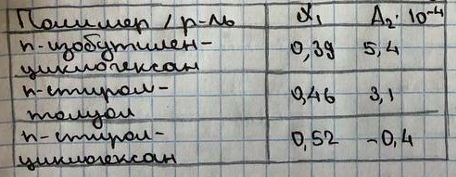 Полимер / р-ль χ₁ A₂·10⁻⁴
п-изобутилен-
циклогексан 0,39 5,4
п-стирол-
толуол 0,46 3,1
п-стирол-
циклогексан 0,52 -0,4